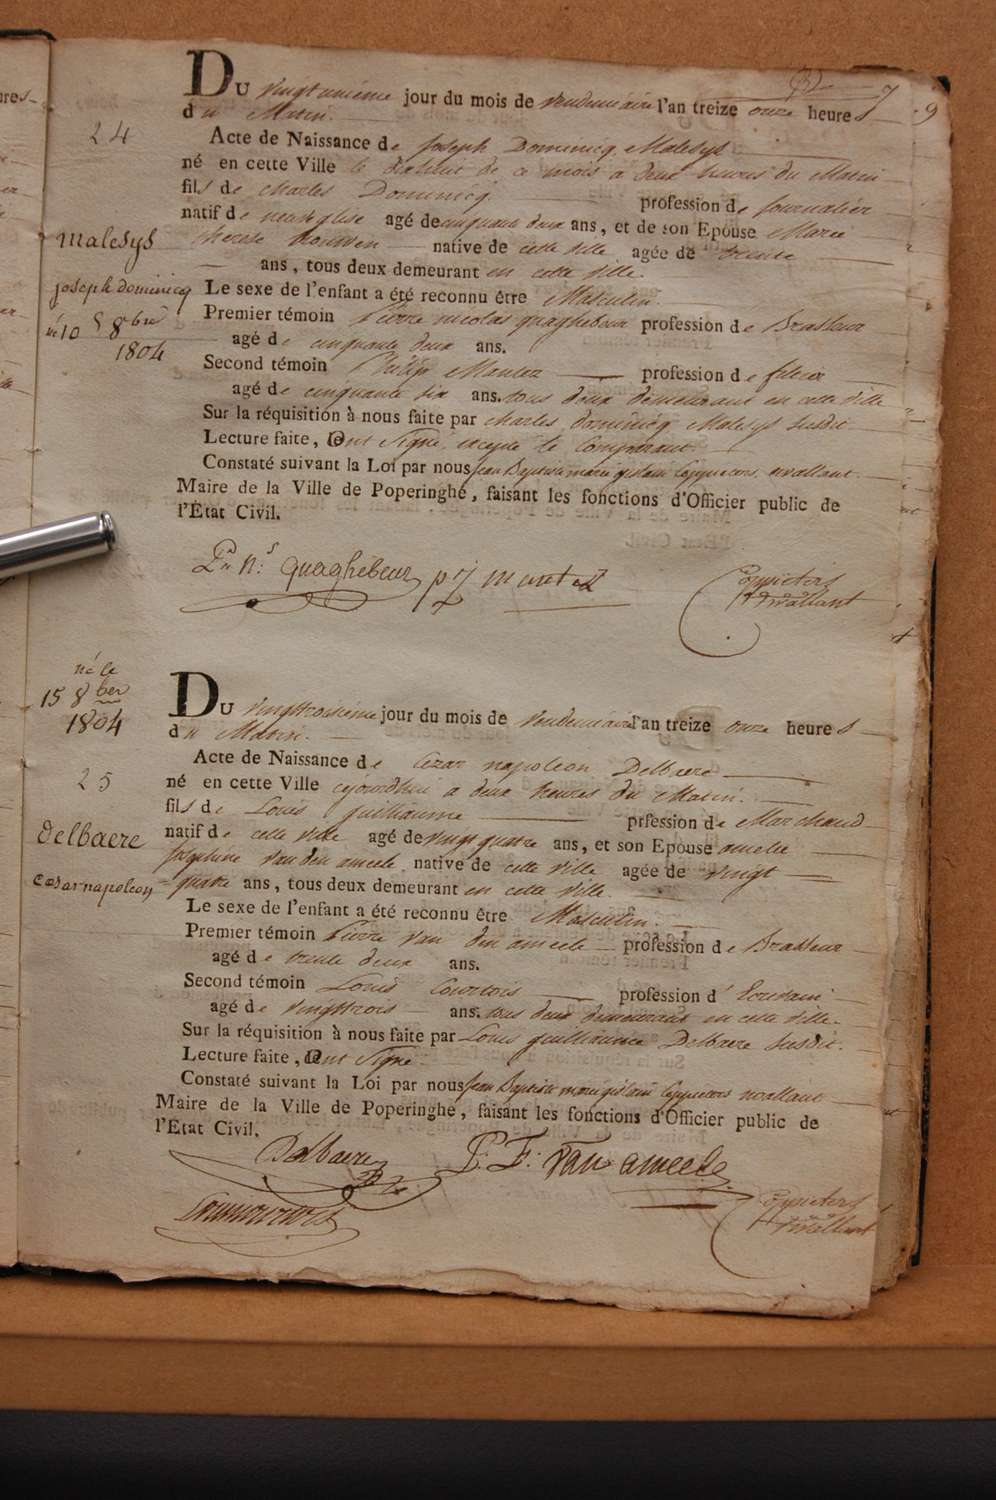 9
24
DU vingtunième jour du mois de vendemiaire l'an treize onze heures
du Matin.
Acte de Naissance de joseph Dominicq Malesys
né en cette Ville le dixhuit de ce mois a deux heures du Matin
fils de Charles Dominicq profession de journalier
natif de neuveglise agé de cinquant deux ans, et de son Epouse Marie
therese native de cette ville agée de trente
ans, tous deux demeurant en cette ville.
Le sexe de l'enfant a été reconnu être Masculin.
Premier témoin Pierre nicolas quaghebeur profession de Brasseur
agé de cinquante deux ans.
Second témoin Philipe profession de
agé de cinquante six ans. tous deux demeurant en cette ville
Sur la réquisition à nous faite par charles dominicq Malesys susdit
Lecture faite, ont signé, excepté le Comparant.
Constaté suivant la Loi par nous jean Baptiste marie gislain
Maire de la Ville de Poperinghe, faisant les fonctions d'Officier public de
l'État Civil.
malesys
joseph dominicq
né 10 8bre
1804
quaghebeur
né le
15 8ber
1804
25
delbaere
caesar napoleon
DU vingttroisième jour du mois de vendemiaire l'an treize onze heures
du Matin.
Acte de Naissance de Cezar napoleon Delbaere
né en cette Ville cejourdhui a deux heures du Matin.
fils de Louis guilliaume prfession de Marchand
natif de cette ville agé de vingt quatre ans, et son Epouse amelie
josephine van den ameele native de cette ville agée de vingt
quatre ans, tous deux demeurant en cette ville.
Le sexe de l'enfant a été reconnu être Masculin.
Premier témoin Pierre van den ameele profession de Brasseur
agé de trente deux ans.
Second témoin Louis Courtois profession d'
agé de vingttrois ans. tous deux demeurant en cette ville.
Sur la réquisition à nous faite par Louis guilliaume Delbaere susdit.
Lecture faite, ont signé.
Constaté suivant la Loi par nous jean Baptiste marie gislain
Maire de la Ville de Poperinghe, faisant les fonctions d'Officier public de
l'État Civil.
Delbaere P: F: van ameele